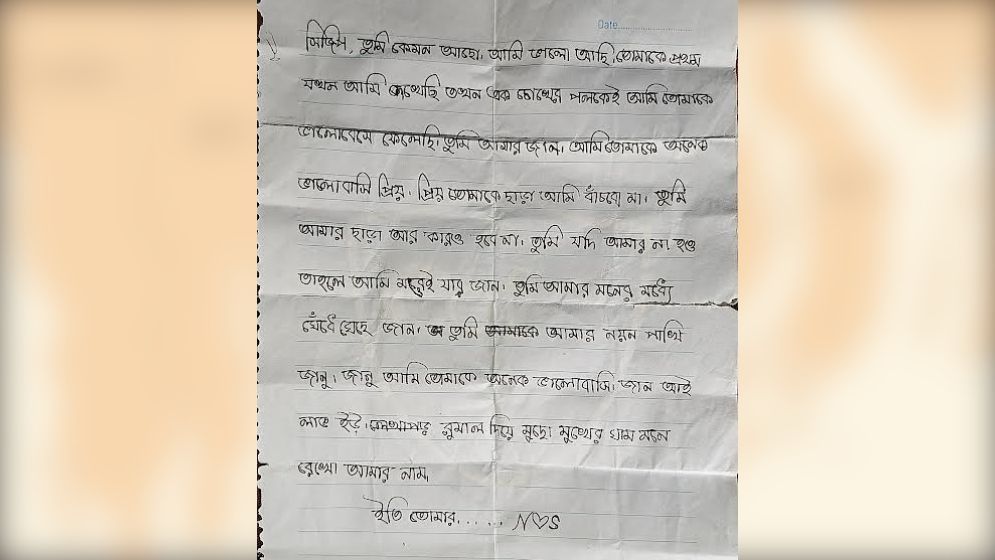 Date
লিজিল, তুমি কেমন আছো, আমি ভালো আছি, তোমাকে প্রথম
যখন আমি দেখেছি তখন এক চোখের পলকেই আমি তোমাকে
ভালোবেসে ফেলেছি। তুমি আমার জান, আমি তোমাকে অনেক
ভালোবাসি প্রিয়। প্রিয় তোমাকে ছাড়া আমি বাঁচবো না। তুমি
আমার ছাড়া আর কারও হবে না। তুমি যদি আমার না হও
তাহলে আমি মরেই যাব জান। তুমি আমার মনের মধ্যে
গেঁথে গেছে জান। তুমি আমার নয়ন পাখি
জানু। জানু আমি তোমাকে অনেক ভালোবাসি। জান আই
লাভ ইউ। রুমাল দিয়ে মুছো মুখের ঘাম মনে
রেখো আমার নাম,
ইতি তোমার...... N♡S